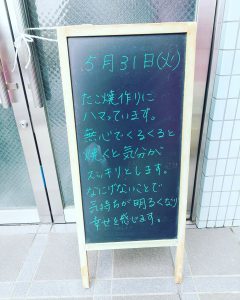 5月31日(火)
たこ焼作りに
ハマっています。
無心でくるくると
焼くと気分が
スッキリとします。
なにげないことで
気持ちが明るくなり
幸せを感じます。